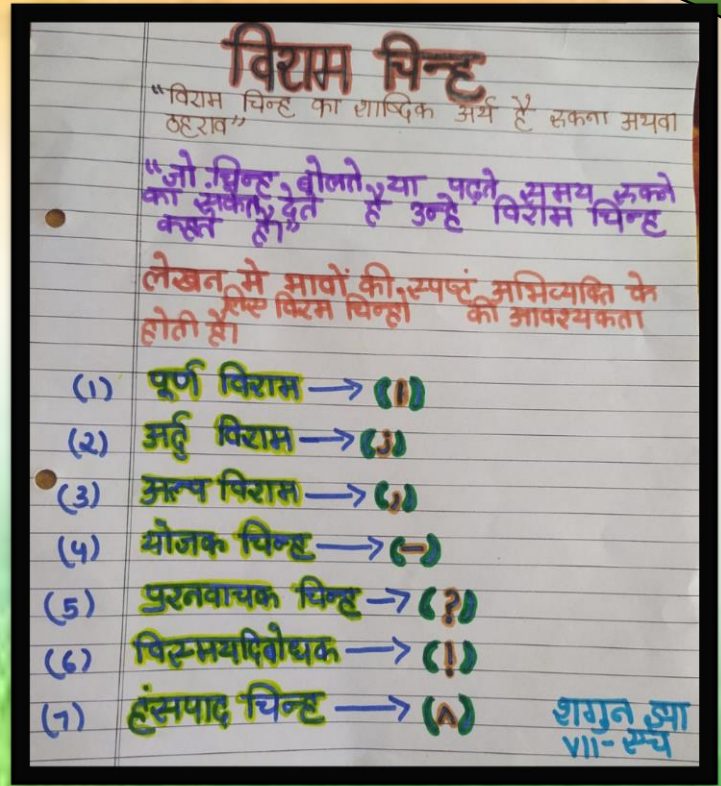 विराम चिन्ह
"विराम चिन्ह का शाब्दिक अर्थ है रुकना मथवा
ठहराव"
"जो चिन्ह बोलते या पढ़ते समय रुकने
का संकेत देते हैं उन्हे विराम चिन्ह
कहते हैं।"
लेखन मे भावों की स्पष्टं अभिव्यक्ति के
लिए विरम चिन्हो की आवश्यकता
होती है।
(1) पूर्ण विराम → (।)
(2) अर्द्ध विराम → (;)
(3) अल्प विराम → (,)
(4) योजक चिन्ह → (-)
(5) प्रश्नवाचक चिन्ह → (?)
(6) विस्मयदिबोधक → (!)
(7) हंसपाद चिन्ह → (^)
शगुन झा
VII-एच